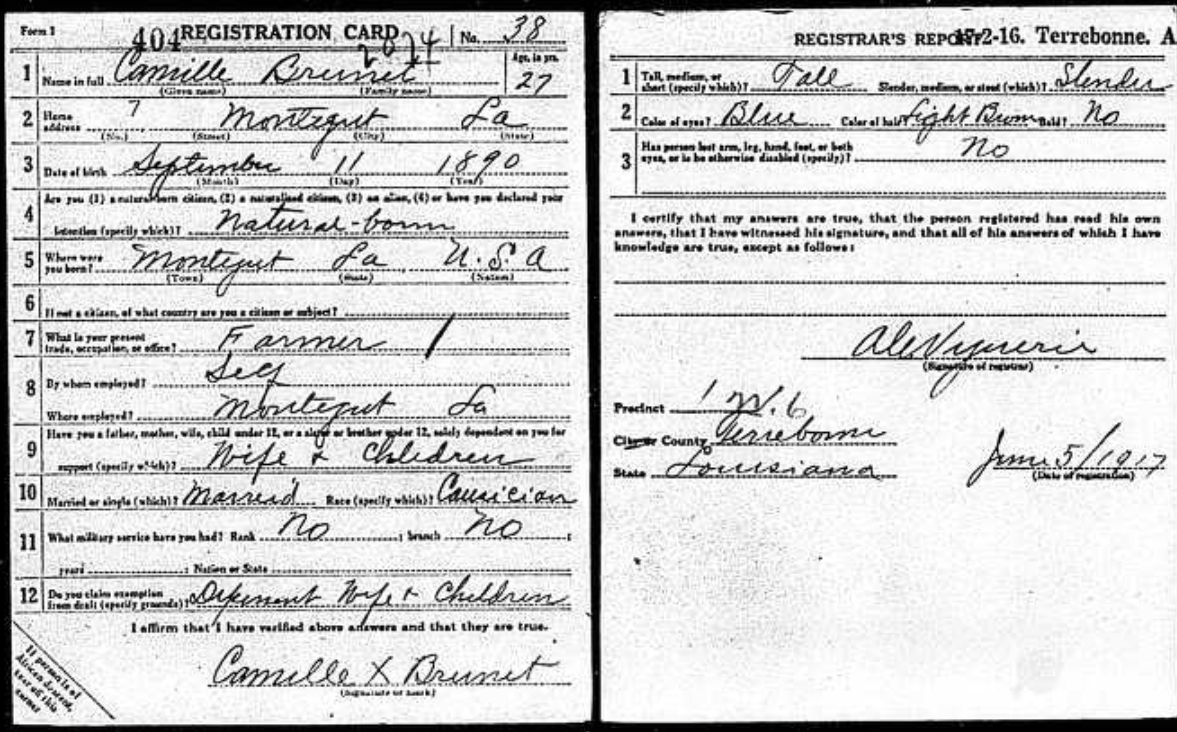 Form 1 404 REGISTRATION CARD 2874 No. 38
1 Name in full Camille Brunet Age, in yrs. 27
(Given name) (Family name)
2 Home address 7 Montegut La
(No.) (Street) (City) (State)
3 Date of birth September 11 1890
(Month) (Day) (Year)
4 Are you (1) a natural-born citizen, (2) a naturalized citizen, (3) an alien, (4) or have you declared your
intention (specify which)? Natural-born
5 Where were you born? Montegut La U.S.A
(Town) (State) (Nation)
6 If not a citizen, of what country are you a citizen or subject?
7 What is your present trade, occupation, or office? Farmer /
8 By whom employed? Self
Where employed? Montegut La
9 Have you a father, mother, wife, child under 12, or a sister or brother under 12, solely dependent on you for
support (specify which)? Wife & Children
10 Married or single (which)? Married Race (specify which)? Causician
11 What military service have you had? Rank No ; branch No ;
years ; Nation or State
12 Do you claim exemption from draft (specify grounds)? Dependent Wife & Children
I affirm that I have verified above answers and that they are true.
Camille X Brunet
(Signature or mark)
If person is of
African descent,
tear off this
corner
REGISTRAR'S REPORT 17-2-16. Terrebonne. A
1 Tall, medium, or short (specify which)? Tall Slender, medium, or stout (which)? Slender
2 Color of eyes? Blue Color of hair? Light Brown Bald? No
3 Has person lost arm, leg, hand, foot, or both eyes, or is he otherwise disabled (specify)? No
I certify that my answers are true, that the person registered has read his own
answers, that I have witnessed his signature, and that all of his answers of which I have
knowledge are true, except as follows:
(Signature of registrar)
Precinct 1 W. 6
City or County Terrebonne
State Louisiana June 5/1917
(Date of registration)